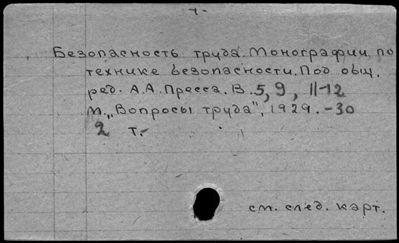 Безопасность труда. Монографии по
технике безопасности. Под общ.
ред. А.А. Пресса. В. 5, 9, 11-12
М. „Вопросы труда", 1929.-30
2 т.-
см. след. карт.